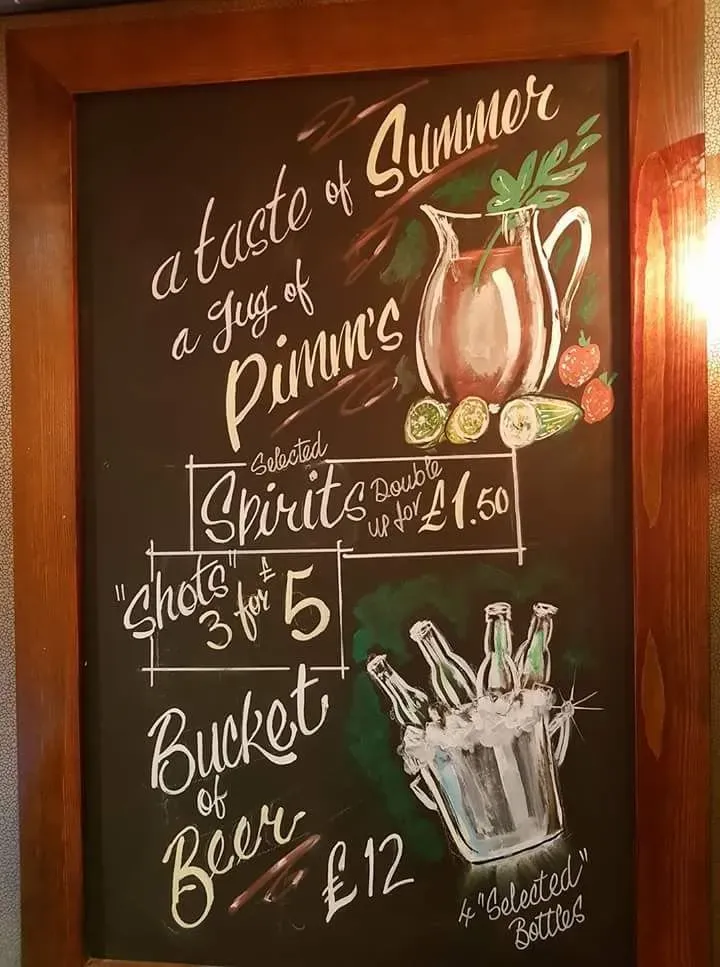 a taste of Summer
a Jug of
Pimm's
Selected
Spirits Double up for £1.50
"Shots"
3 for £5
Bucket
of
Beer
£12
4 "Selected"
Bottles